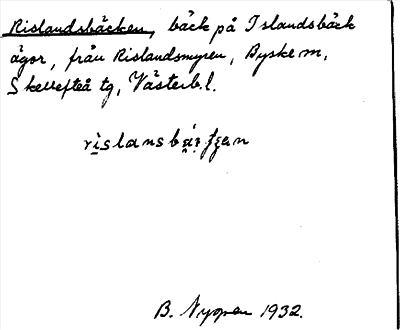 Rislandsbäcken, bäck på Islandsbäck
ägor, från Rislandsmyren, Byske m,
Skellefteå tg, Västerb.l.
B. Nygren 1932.